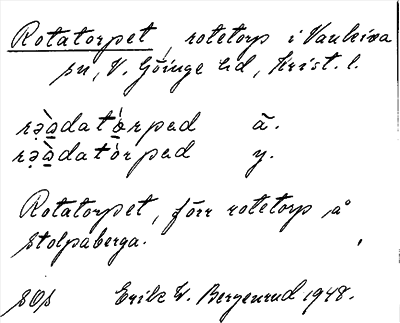 Rotatorpet, rotetorp i Vankiva
sn, V. Göinge hd, Krist. l.
rə̀adatɔ́rpad ä.
rə̀adatórpad y.
Rotatorpet, förr rotetorp å
Stolpaberga.
SOS Erik W. Bergenrud 1948.